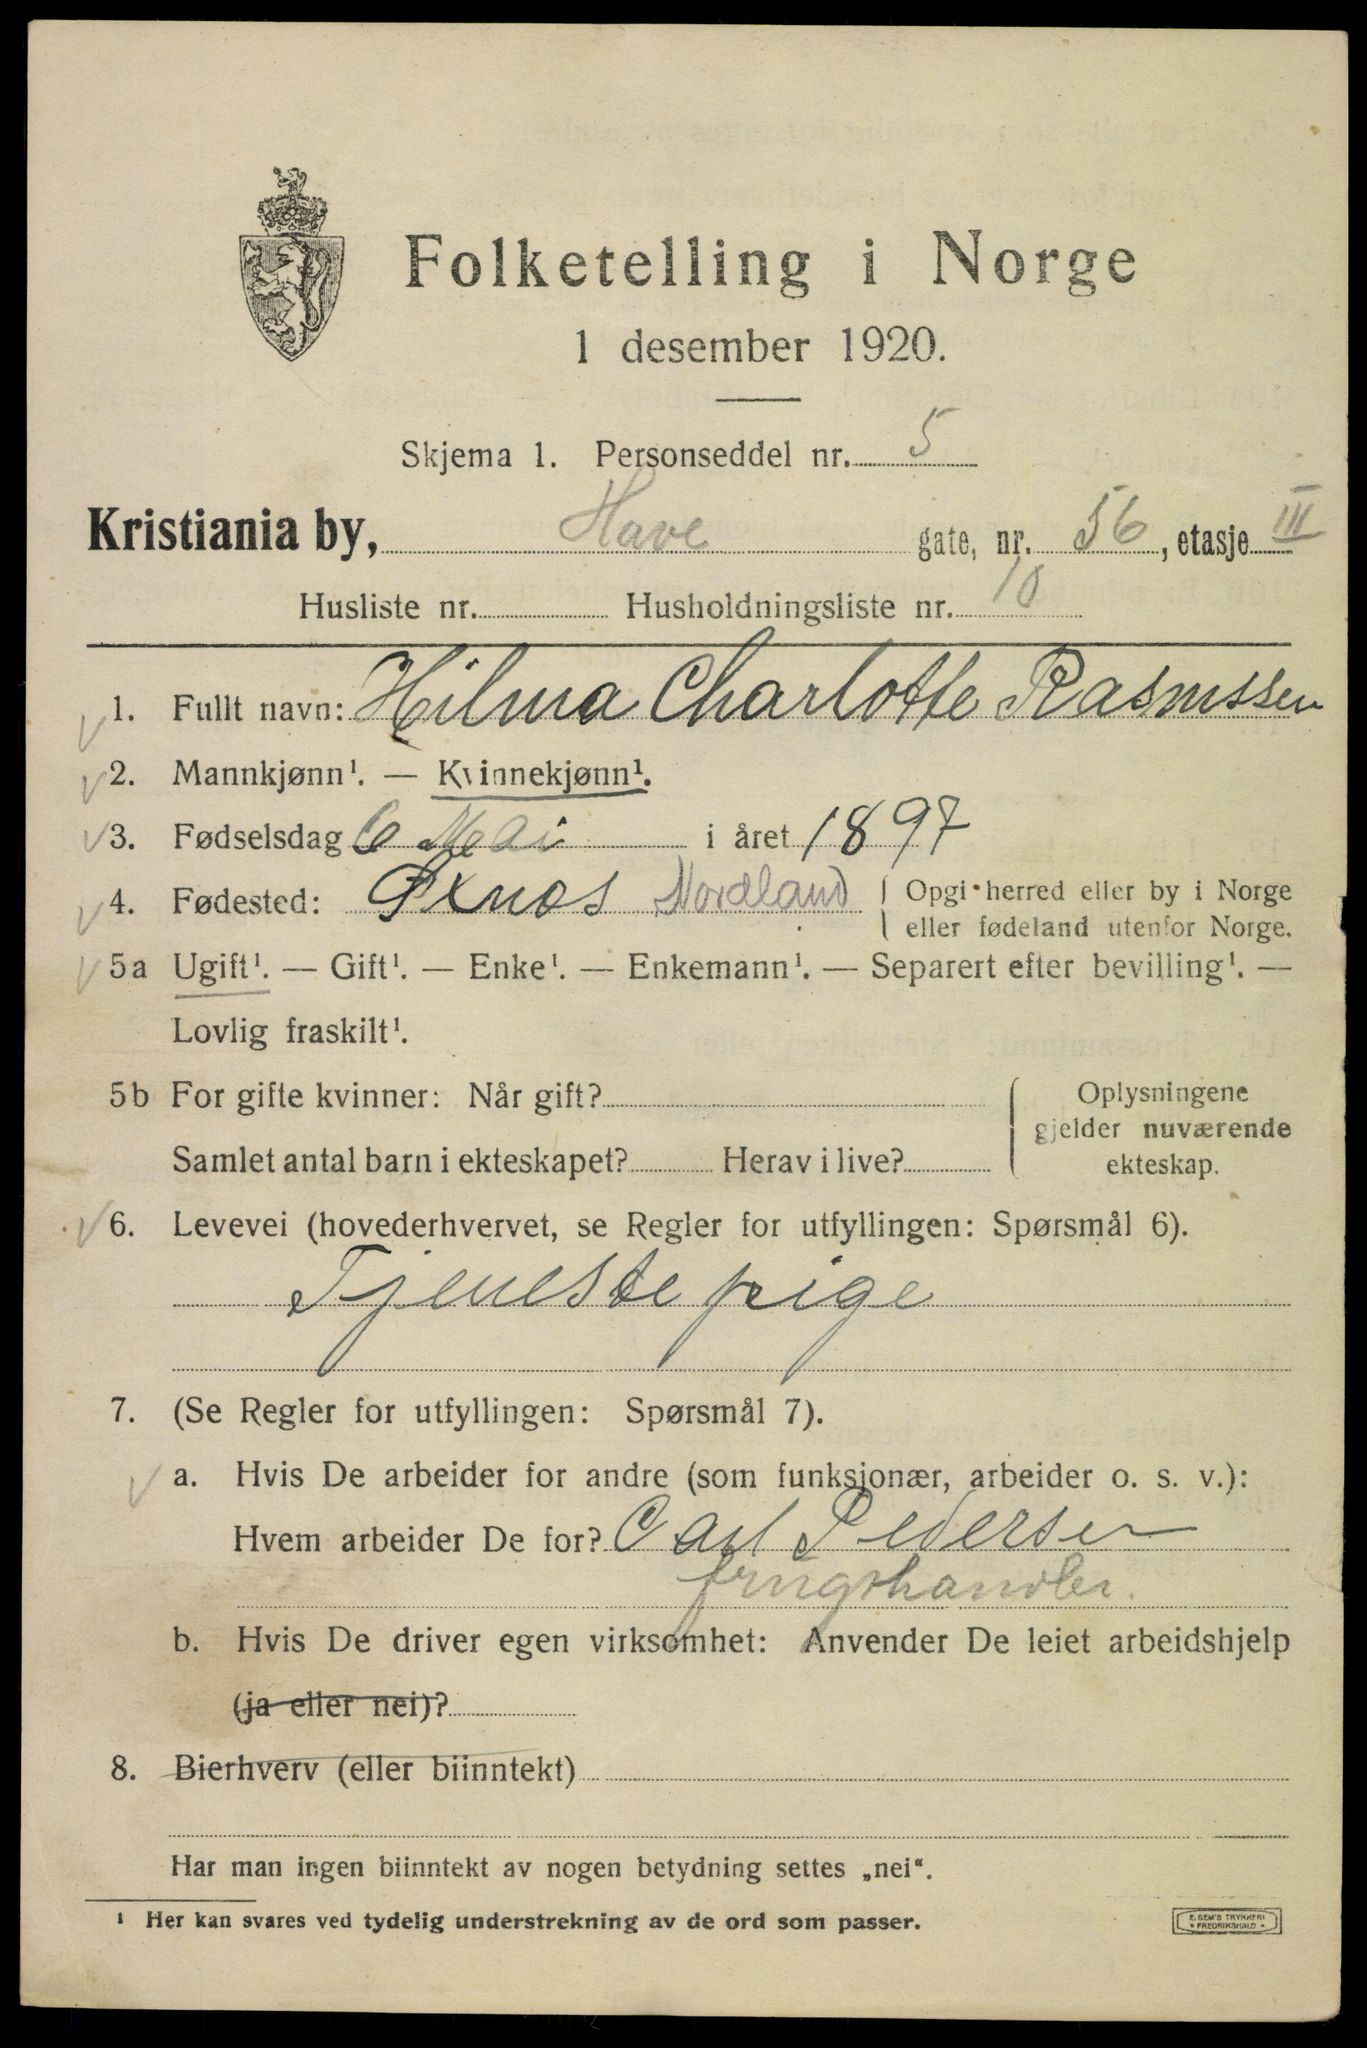 Folketelling i Norge
1 desember 1920.
Skjema 1. Personseddel nr. 5
Kristiania by, Have gate, nr. 56, etasje III
Husliste nr. Husholdningsliste nr. 10
1. Fullt navn: Hilma Charlotte Rasmssen
2. Mannkjønn¹. — Kvinnekjønn¹.
3. Fødselsdag 6 Mai i året 1897
4. Fødested: Øxnes Nordland Opgi herred eller by i Norge
eller fødeland utenfor Norge.
5a Ugift¹. — Gift¹. — Enke¹. — Enkemann¹. — Separert efter bevilling¹. —
Lovlig fraskilt¹.
5b For gifte kvinner: Når gift? Oplysningene
gjelder nuværende
Samlet antal barn i ekteskapet? Herav i live? ekteskap.
6. Levevei (hovederhvervet, se Regler for utfyllingen: Spørsmål 6).
Tjeneste pige
7. (Se Regler for utfyllingen: Spørsmål 7).
a. Hvis De arbeider for andre (som funksjonær, arbeider o. s. v.):
Hvem arbeider De for? Carl Pedersen
frugthandler.
b. Hvis De driver egen virksomhet: Anvender De leiet arbeidshjelp
(ja eller nei)?
8. Bierhverv (eller biinntekt)
Har man ingen biinntekt av nogen betydning settes „nei“.
¹ Her kan svares ved tydelig understrekning av de ord som passer.
E. SEM'S TRYKKERI
* FREDRIKSHALD *